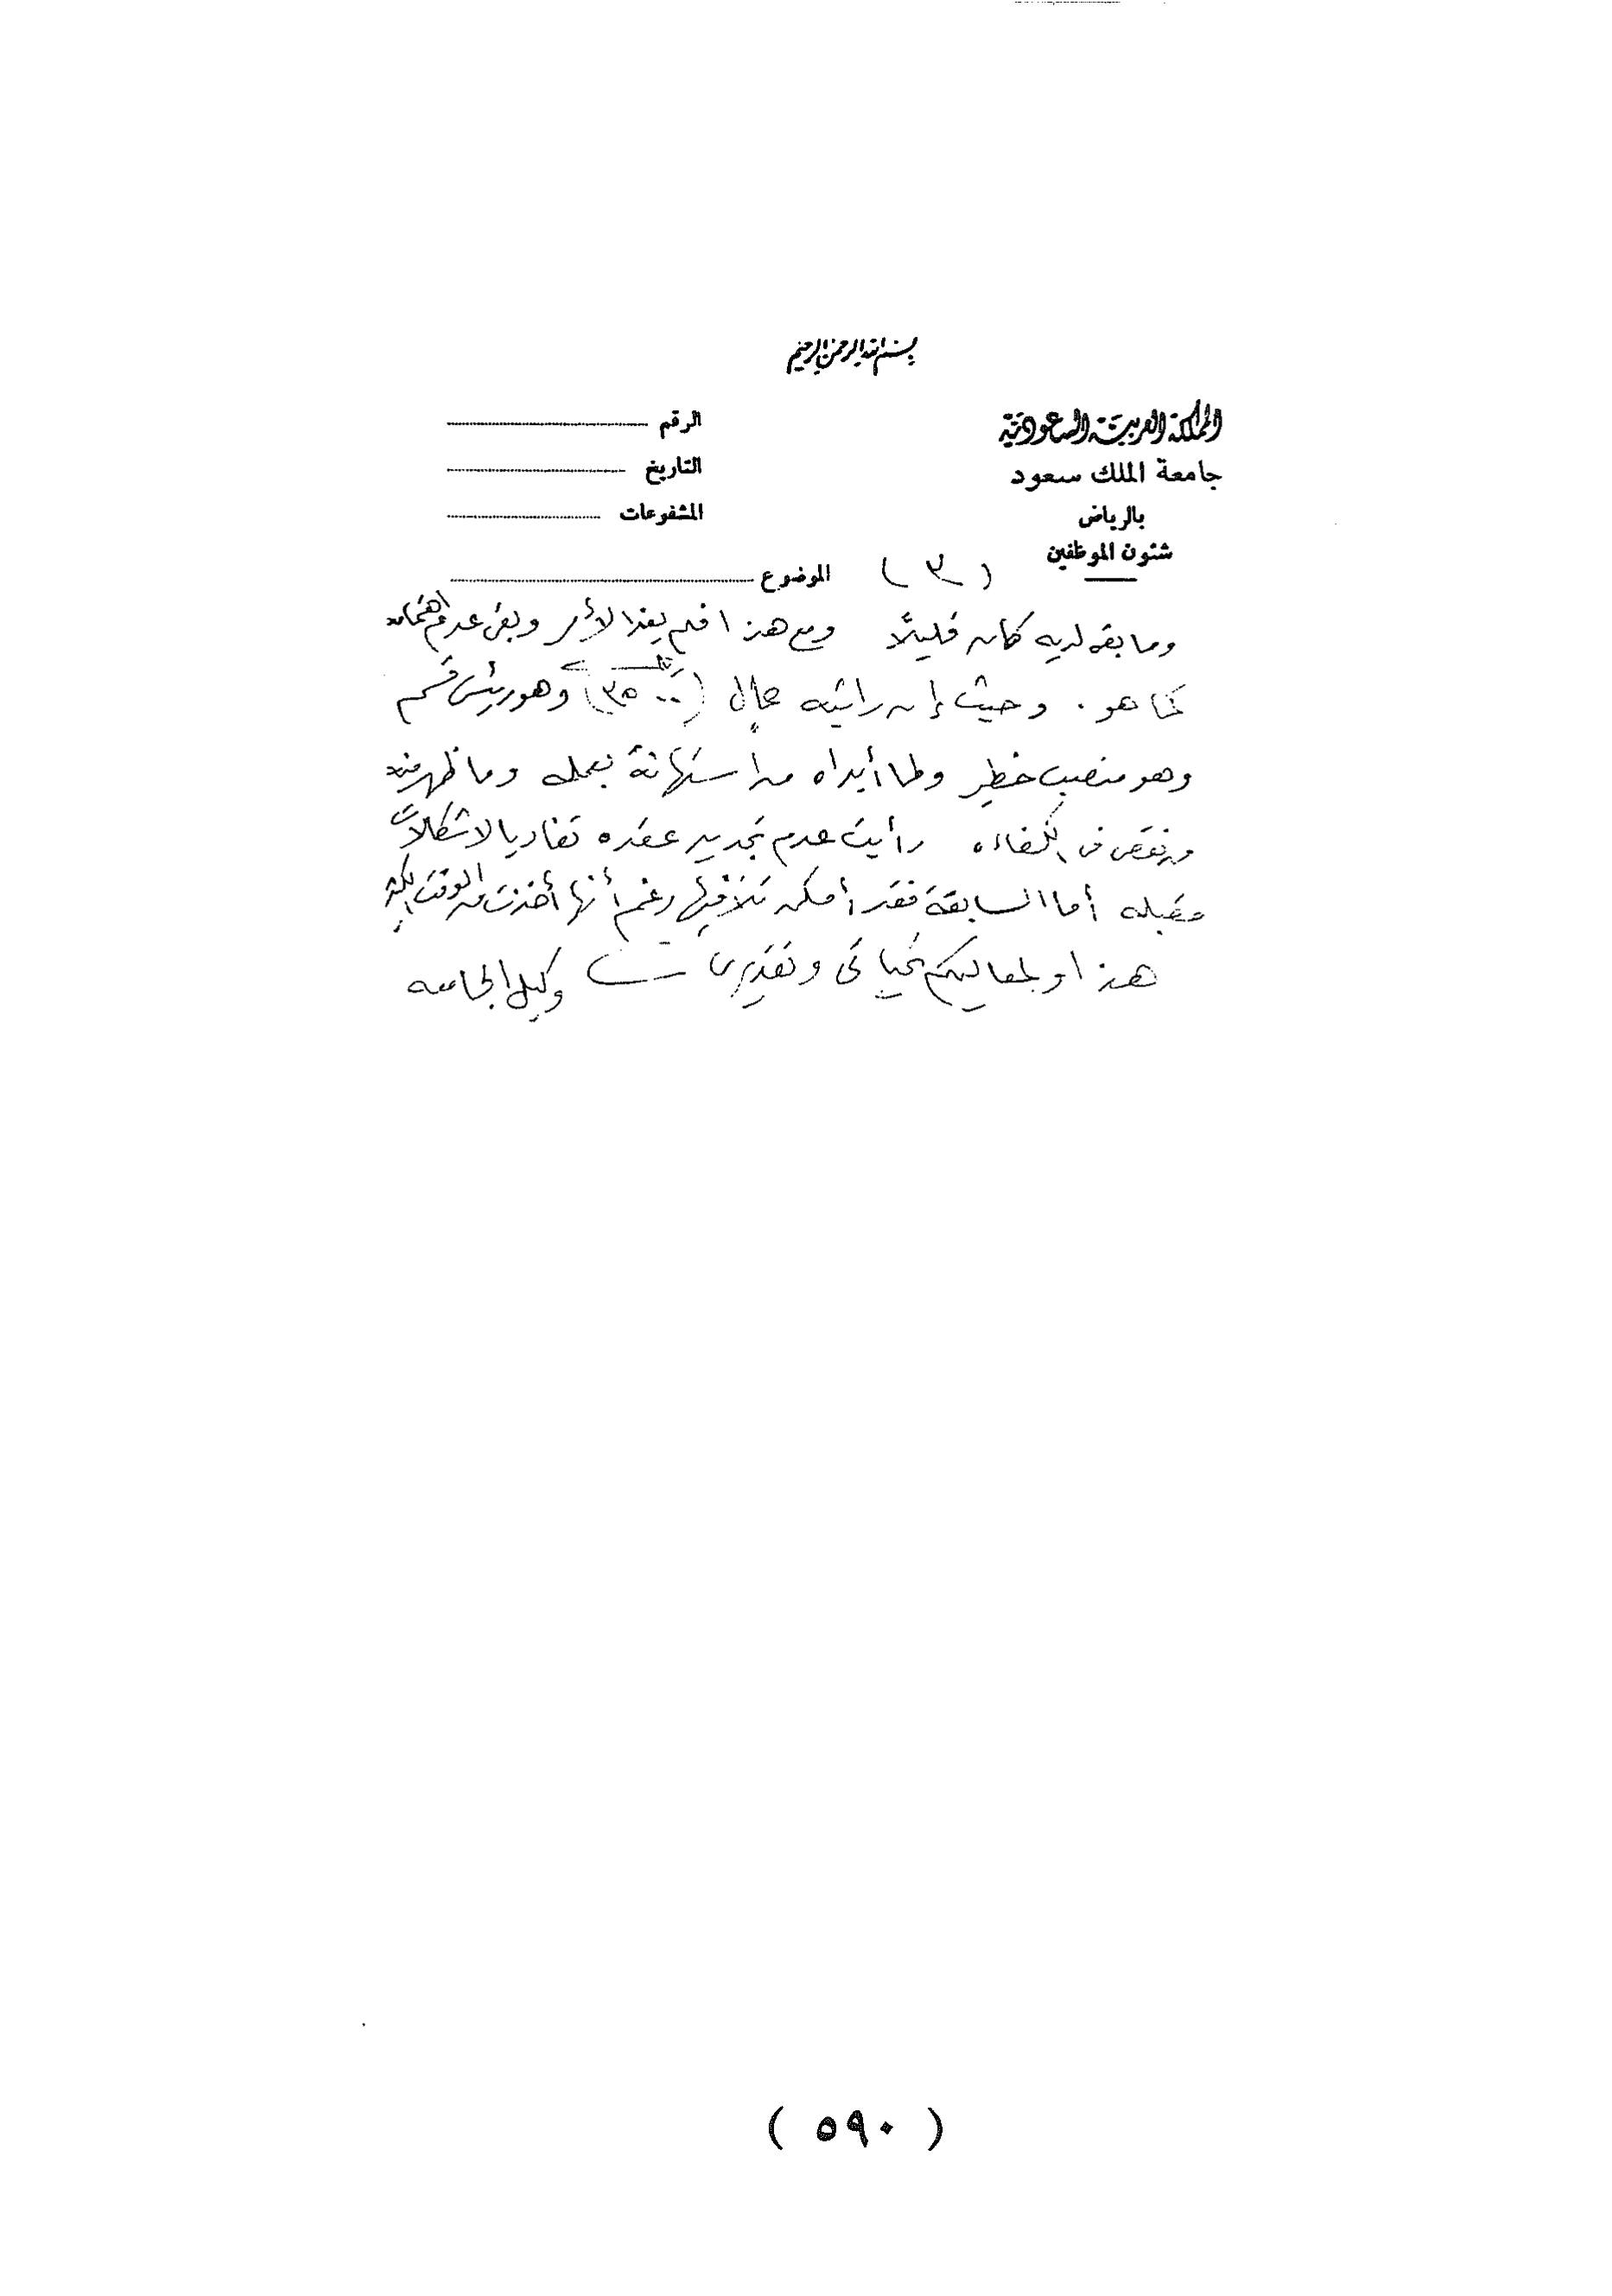 بسم الله الرحمن الرحيم
المملكة العربية السعودية
جامعة الملك سعود
بالرياض
شئون الموظفين
الرقم
التاريخ
المشفوعات
الموضوع
( ٣ )
وما بقى لديه كان قليلًا ومع هذا فلم يغذ الأمر وبقى عدم اهتمامه
كما هو . وحيث إن راتبه عالٍ (٣٥٠٠) وهو رئيس قسم
وهو منصب خطير ولما أبداه من استهانة بعمله وما ظهر منه
من نقص فى الكفاءه رأيت عدم تجديد عقده تفاديا لاشكالات
مقبله أما السابقة فقد أمكن تلافيها رغم أنها أخذت من الوقت الكثير
هذا ولمعاليكم تحياتى وتقديرى وكيل الجامعه
( ٥٩٠ )